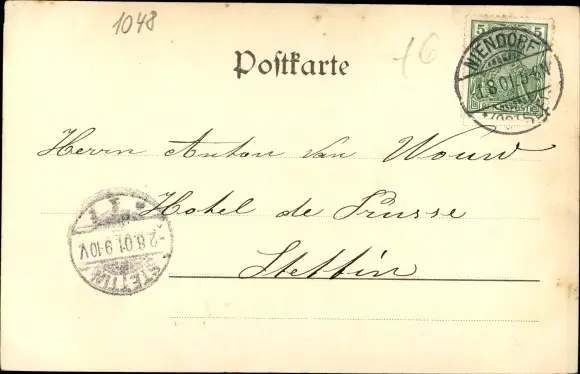 1048
6
5 5
NIENDORF
1.8.01
(OSTSEE)
Postkarte
Herrn Anton van Wouw
Hotel de Prusse
Stettin
STETTIN
2.8.01 9-10V.